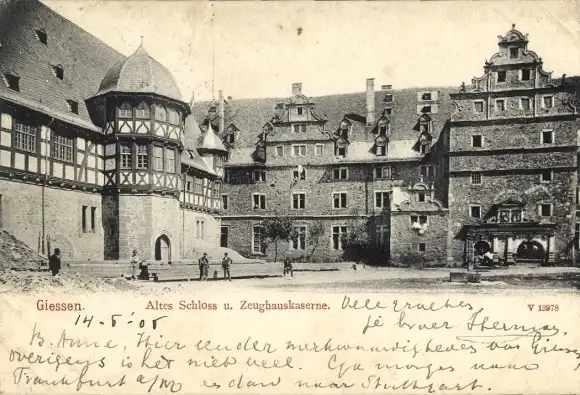 Giessen. Altes Schloss u. Zeughauskaserne. Vele groeten V 13978
14-5'-05 je broer Herman.
B. Anne, Hier een der merkwaardigheden van Giessen
overigens is het niet veel. Ga morgen naar
Frankfurt a/M en dan naar Stuttgart.